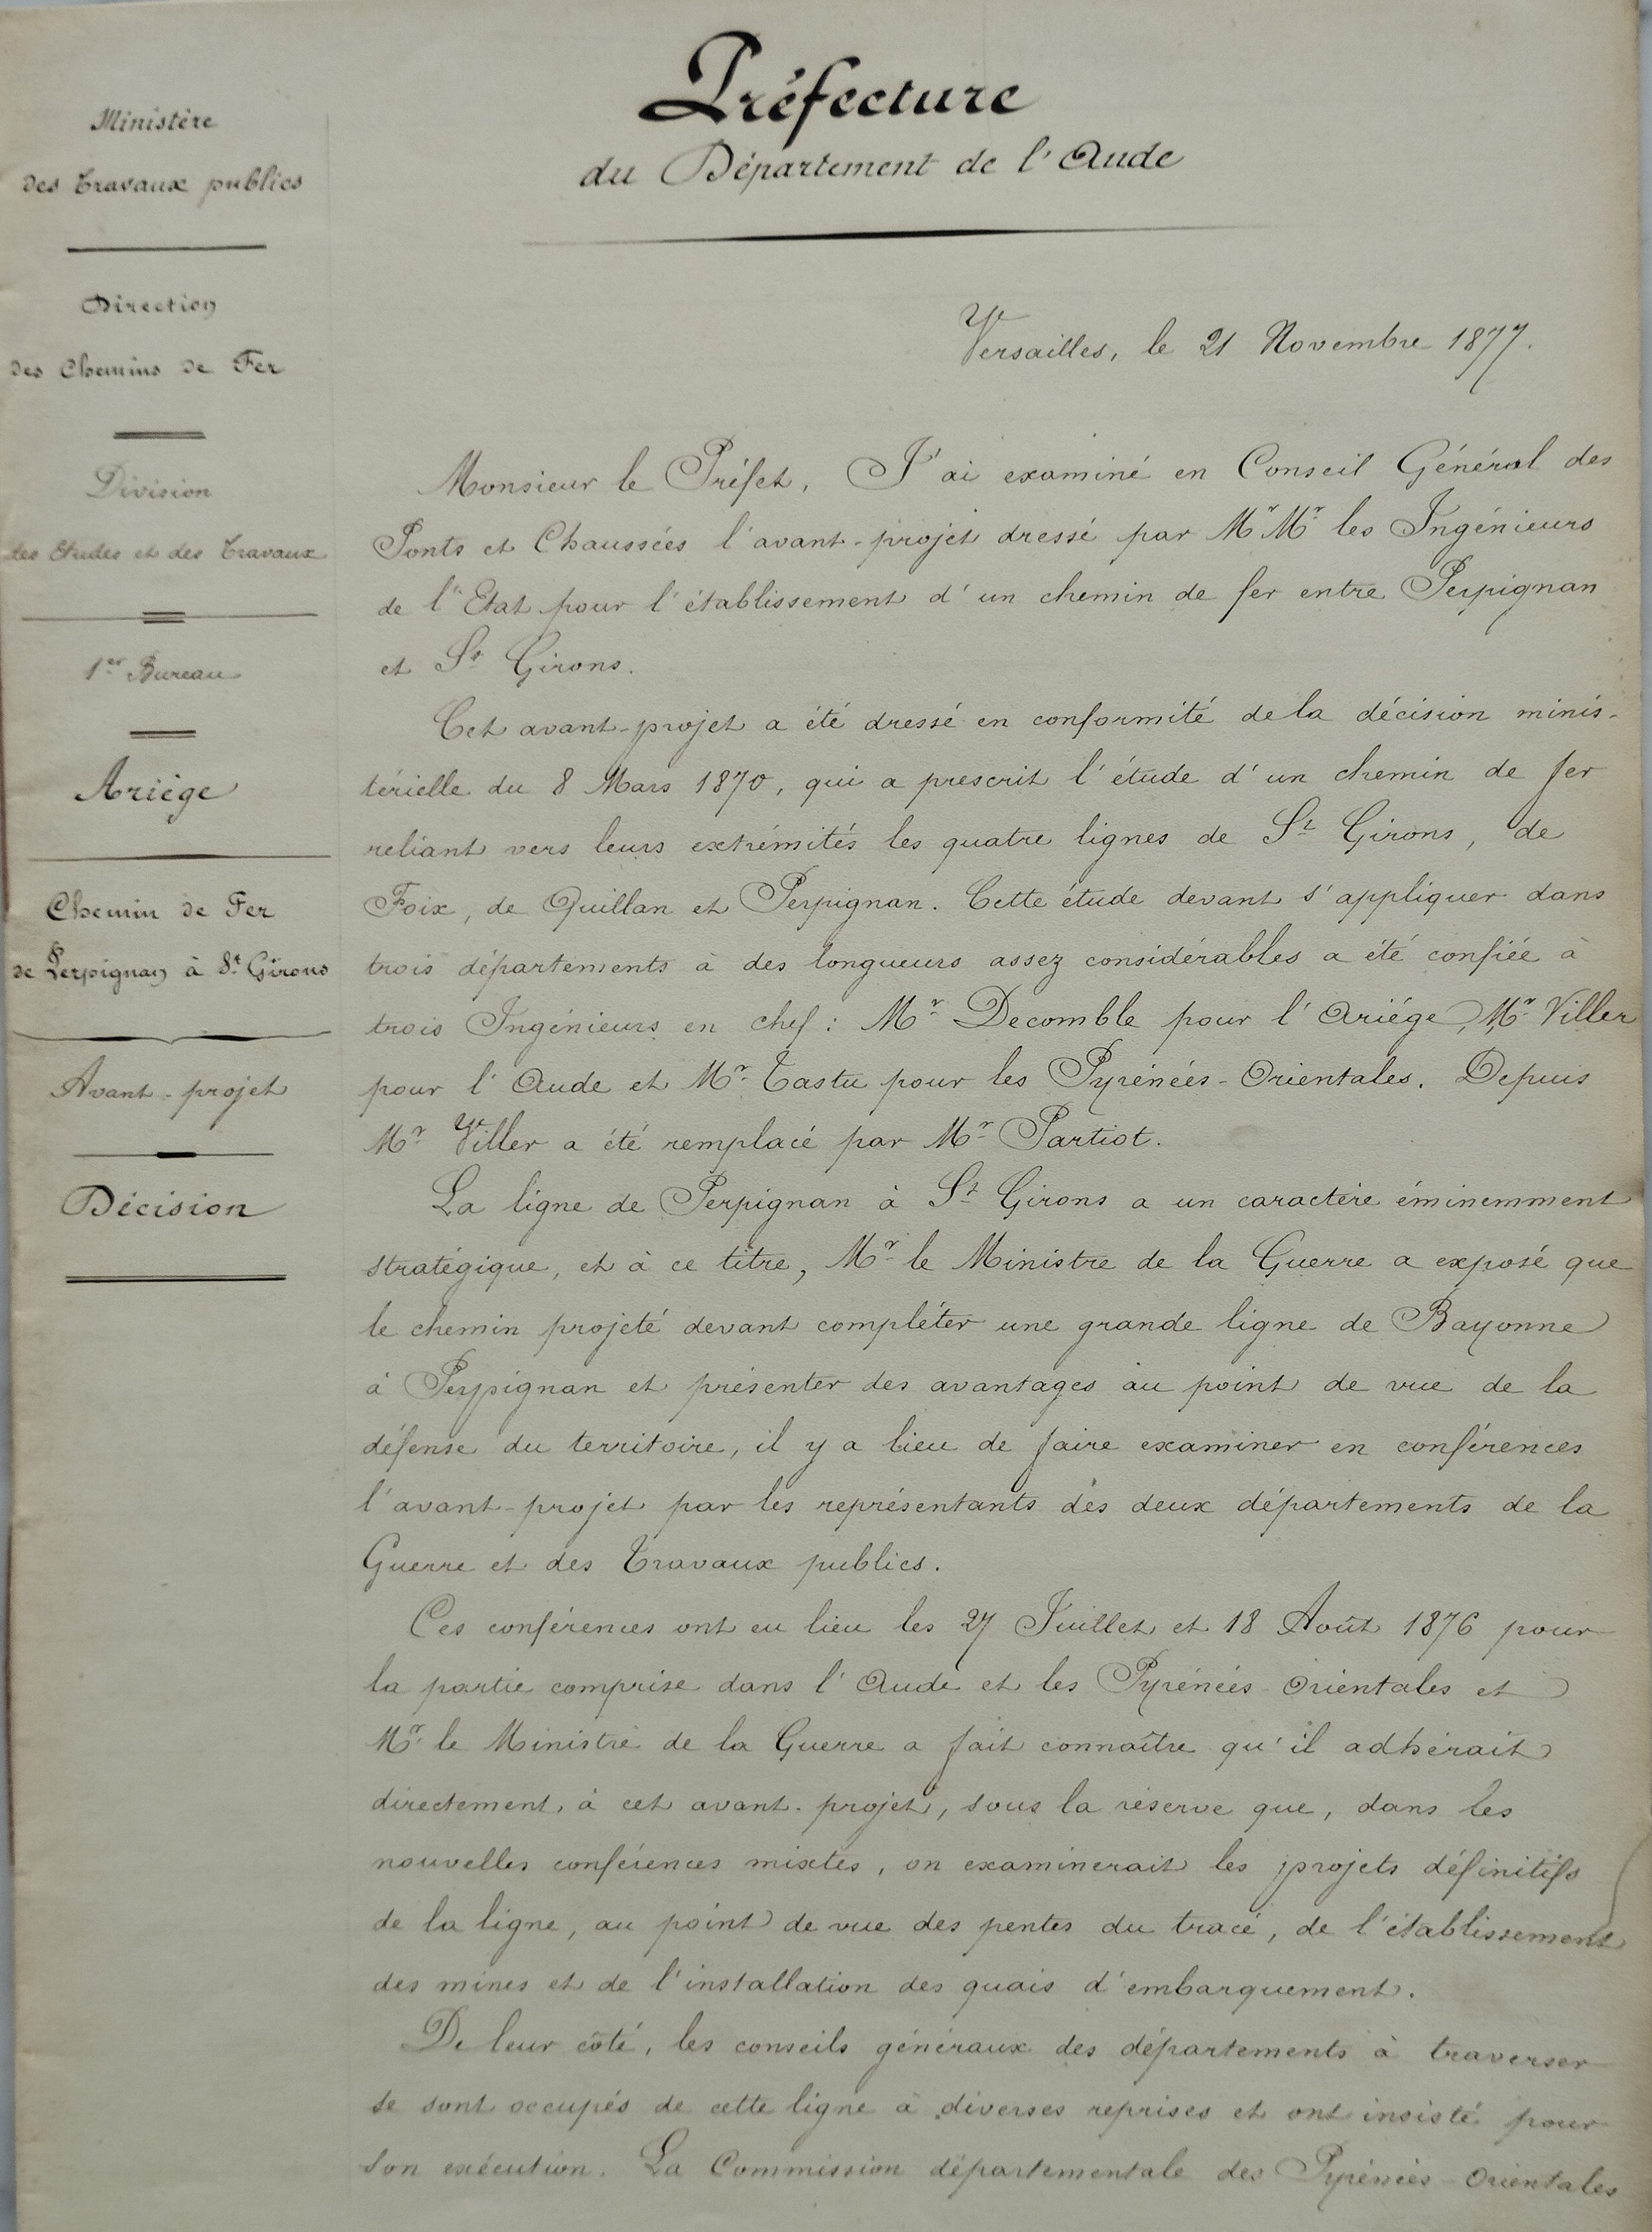 Ministère
des Travaux publics
Direction
des Chemins de Fer
Division
des Etudes et des Travaux
1er Bureau
Ariège
Chemin de Fer
de Perpignan à St Girons
Avant-projet
Décision
Préfecture
du Département de l'Aude
Versailles, le 21 Novembre 1877.
Monsieur le Préfet, J'ai examiné en Conseil Général des
Ponts et Chaussées l'avant-projet dressé par Mr Mr les Ingénieurs
de l'Etat pour l'établissement d'un chemin de fer entre Perpignan
et St Girons.
Cet avant-projet a été dressé en conformité de la décision minis-
térielle du 8 Mars 1870, qui a prescrit l'étude d'un chemin de fer
reliant vers leurs extrémités les quatre lignes de St Girons, de
Foix, de Quillan et Perpignan. Cette étude devant s'appliquer dans
trois départements à des longueurs assez considérables a été confiée à
trois Ingénieurs en chef : Mr Decomble pour l'Ariége, Mr Viller
pour l'Aude et Mr Tastu pour les Pyrénées-Orientales. Depuis
Mr Viller a été remplacé par Mr Partiot.
La ligne de Perpignan à St Girons a un caractère éminemment
stratégique, et à ce titre, Mr le Ministre de la Guerre a exposé que
le chemin projeté devant compléter une grande ligne de Bayonne
à Perpignan et présenter des avantages au point de vue de la
défense du territoire, il y a lieu de faire examiner en conférences
l'avant-projet par les représentants des deux départements de la
Guerre et des Travaux publics.
Ces conférences ont eu lieu les 27 Juillet et 18 Août 1876 pour
la partie comprise dans l'Aude et les Pyrénées-Orientales et
Mr le Ministre de la Guerre a fait connaître qu'il adhérait
directement à cet avant-projet, sous la réserve que, dans les
nouvelles conférences mixtes, on examinerait les projets définitifs
de la ligne, au point de vue des pentes du tracé, de l'établissement
des mines et de l'installation des quais d'embarquement.
De leur côté, les conseils généraux des départements à traverser
se sont occupés de cette ligne à diverses reprises et ont insisté pour
son exécution. La Commission départementale des Pyrénées-Orientales